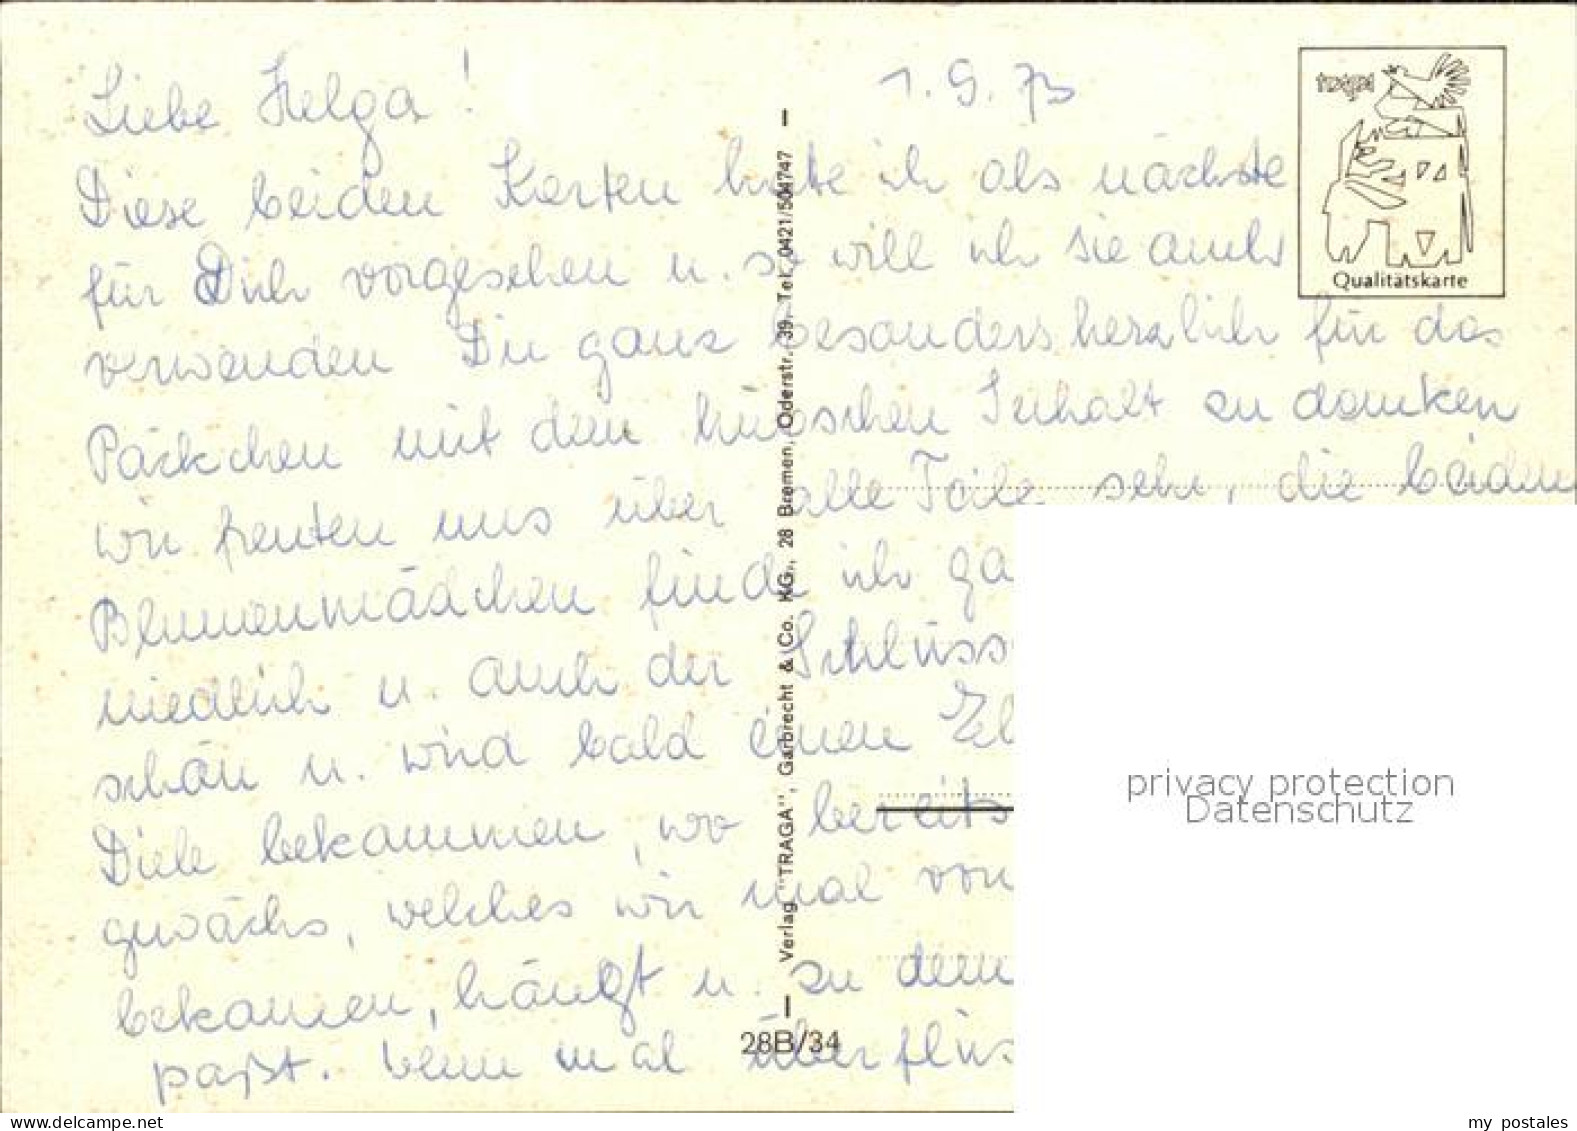 Liebe Helga! 1.9.73
Diese beiden Karten hatte ich als nächste
für Dich vorgesehen u. so will ich sie auch
verwenden Dir ganz besonders herzlich für das
Päckchen mit dem hübschen Inhalt zu danken
wir freuten uns über alle Teile sehr, die beiden
Blumenmädchen finde ich ga
niedlich u. auch der Schlüss
schön u. wird bald einen
Diele bekommen, wo bereits
gewächs, welches wir mal von
bekamen, hängt u. zu dem
paßt. wenn mal überflüs
traga
Qualitätskarte
Verlag "TRAGA", Garbrecht & Co. KG., 28 Bremen, Oderstr. 39, Tel. 0421/504747
28B/34
privacy protection
Datenschutz
my postales